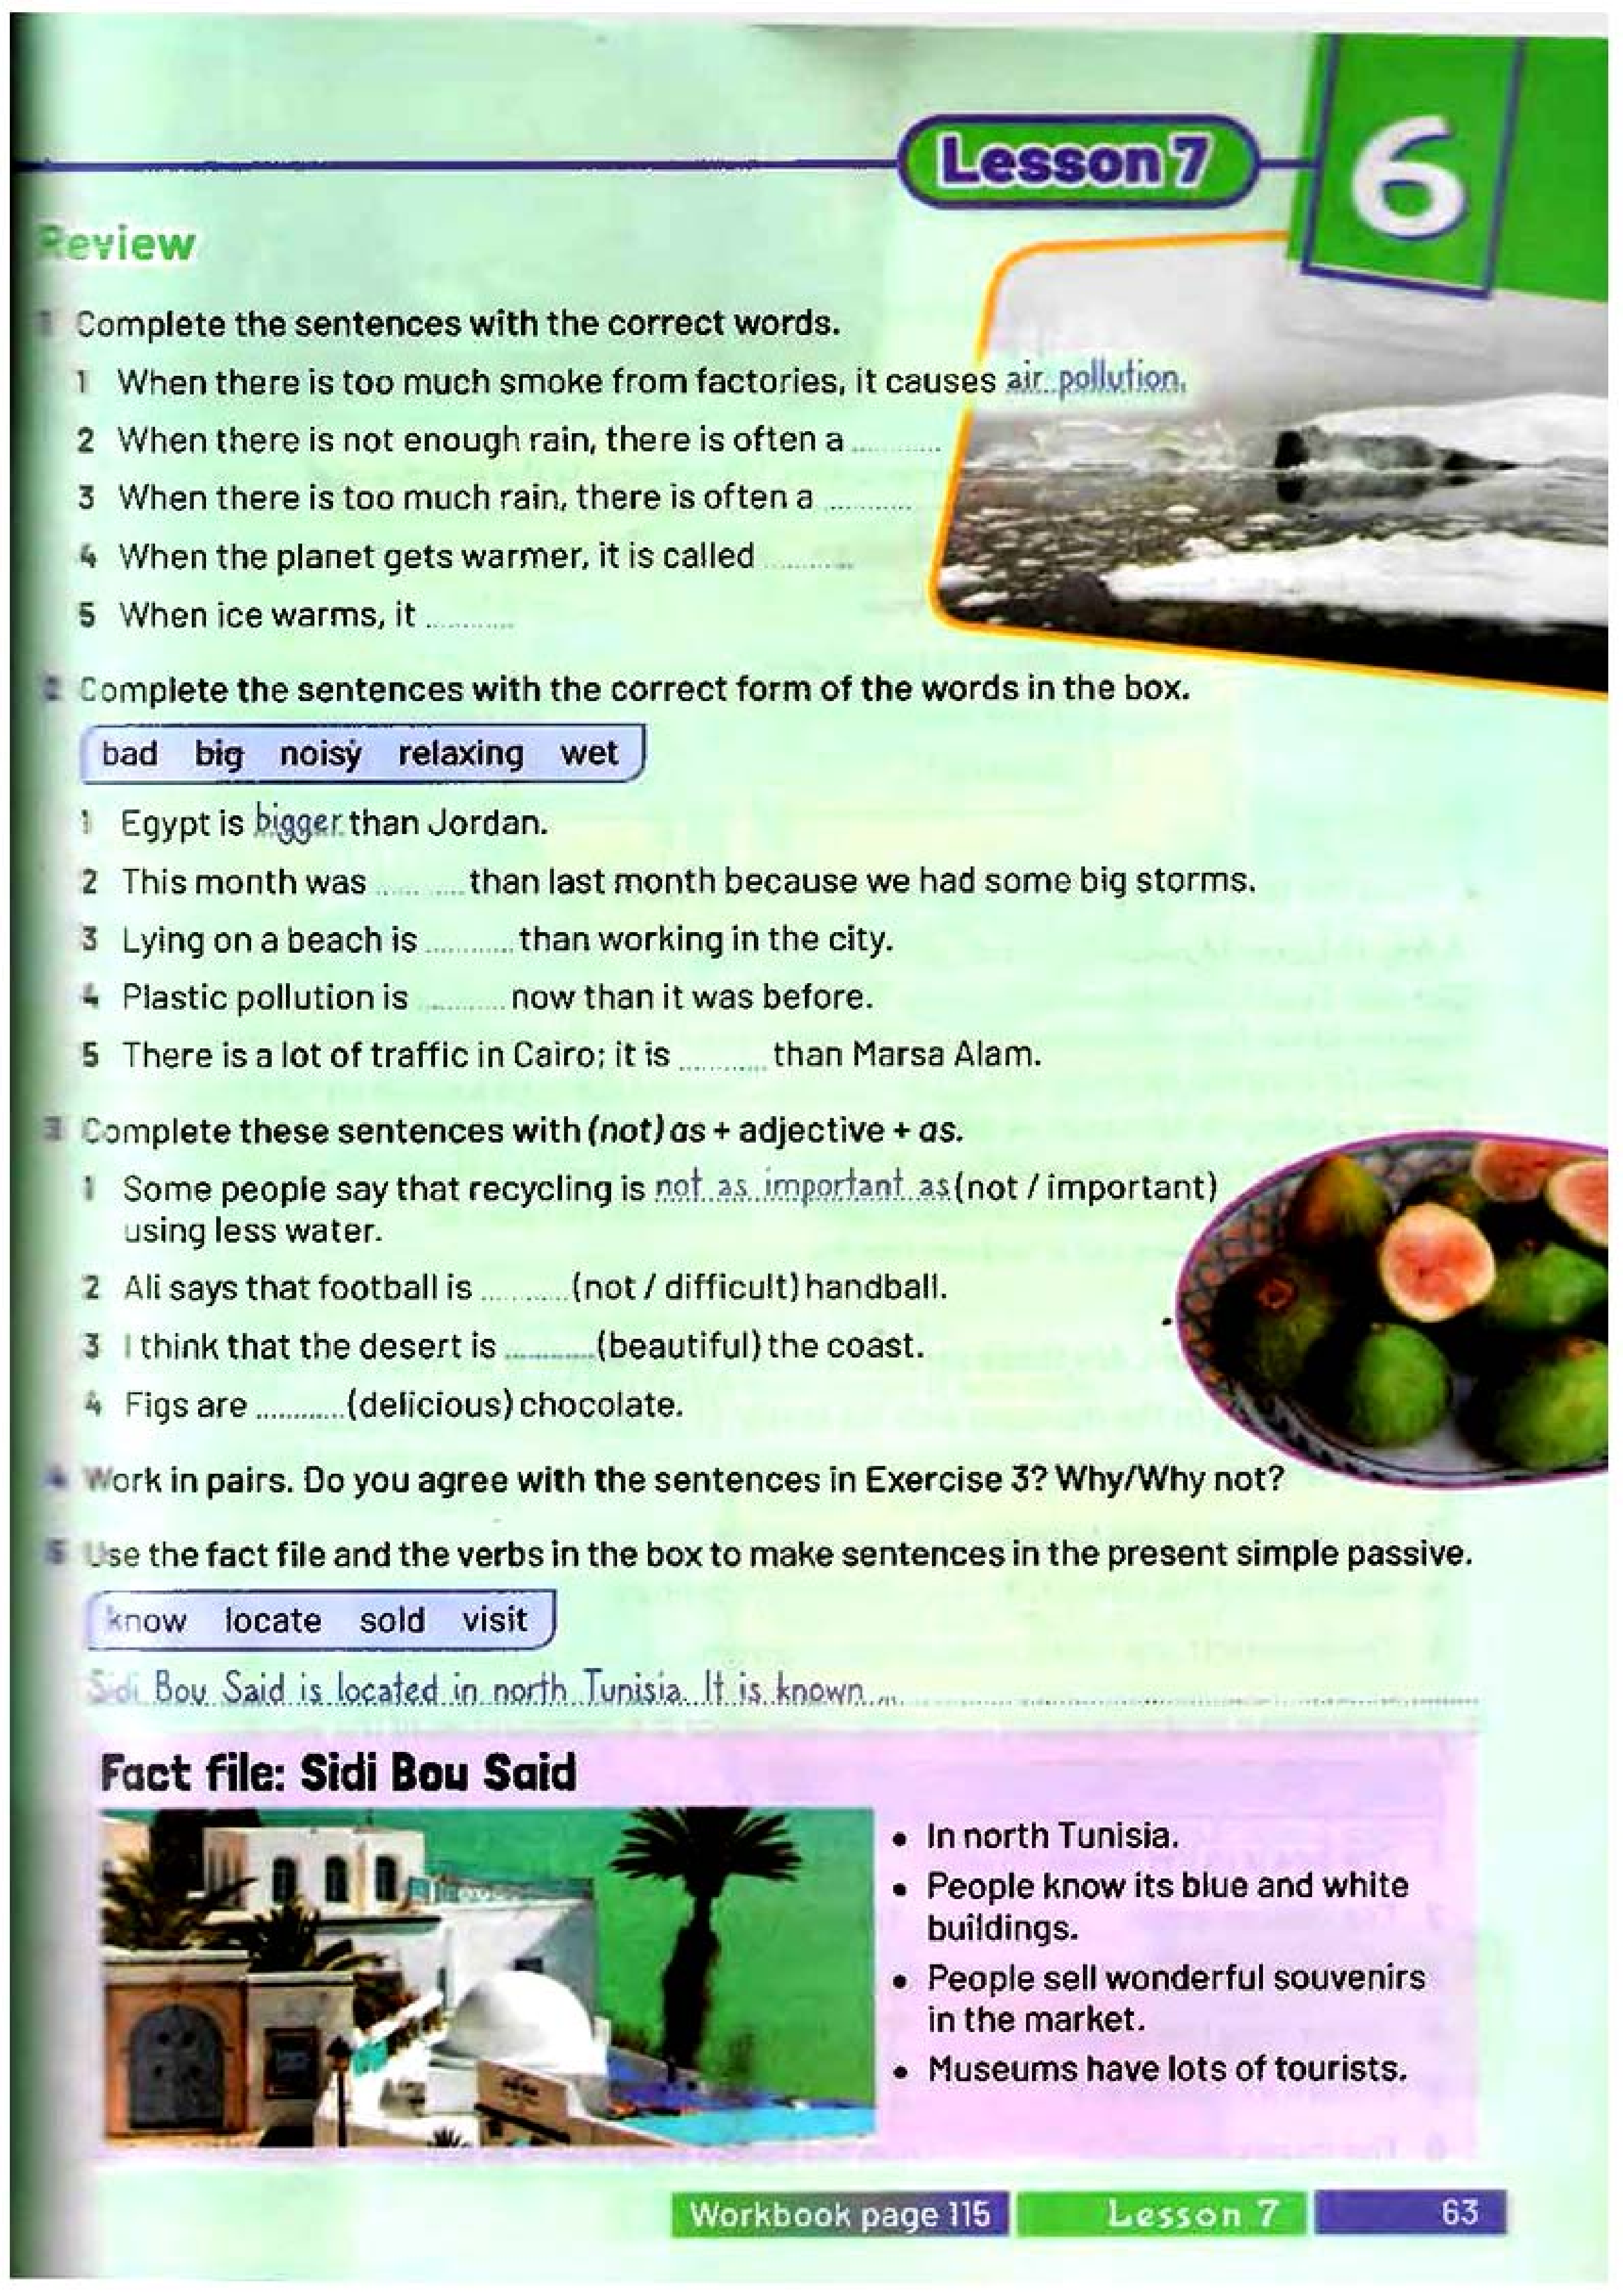 Lesson 7
6
Review
1 Complete the sentences with the correct words.
1 When there is too much smoke from factories, it causes air pollution.
2 When there is not enough rain, there is often a ..........
3 When there is too much rain, there is often a ..........
4 When the planet gets warmer, it is called ..........
5 When ice warms, it ..........
2 Complete the sentences with the correct form of the words in the box.
bad big noisy relaxing wet
1 Egypt is bigger than Jordan.
2 This month was .......... than last month because we had some big storms.
3 Lying on a beach is .......... than working in the city.
4 Plastic pollution is .......... now than it was before.
5 There is a lot of traffic in Cairo; it is .......... than Marsa Alam.
3 Complete these sentences with (not) as + adjective + as.
1 Some people say that recycling is not as important as (not / important)
using less water.
2 Ali says that football is .......... (not / difficult) handball.
3 I think that the desert is .......... (beautiful) the coast.
4 Figs are .......... (delicious) chocolate.
4 Work in pairs. Do you agree with the sentences in Exercise 3? Why/Why not?
5 Use the fact file and the verbs in the box to make sentences in the present simple passive.
know locate sold visit
Sidi Bou Said is located in north Tunisia. It is known ...
Fact file: Sidi Bou Said
• In north Tunisia.
• People know its blue and white
buildings.
• People sell wonderful souvenirs
in the market.
• Museums have lots of tourists.
Workbook page 115 Lesson 7 63